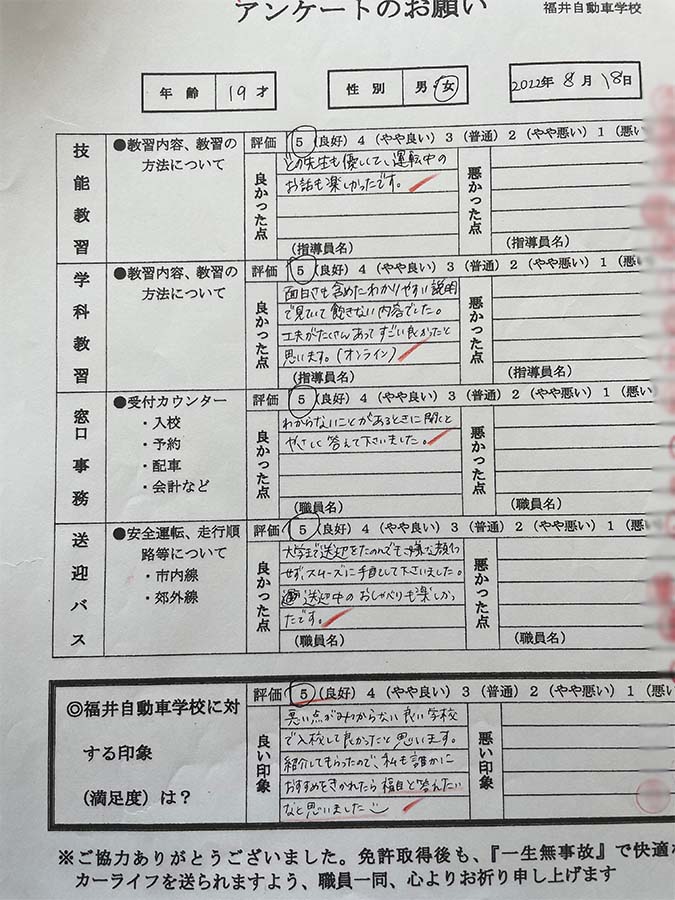 アンケートのお願い
福井自動車学校
年齢 19才 性別 男・女 2022年 8月 18日
技能教習
●教習内容、教習の方法について
評価 5 (良好) 4 (やや良い) 3 (普通) 2 (やや悪い) 1 (悪い
良かった点
どの先生も優しくて、運転中の
お話も楽しかったです。
(指導員名)
悪かった点
(指導員名)
学科教習
●教習内容、教習の方法について
評価 5 (良好) 4 (やや良い) 3 (普通) 2 (やや悪い) 1 (悪い
良かった点
面白さも含めたわかりやすい説明
で見ていて飽きない内容でした。
工夫がたくさんあってすごい良かったと
思います。(オンライン)
(指導員名)
悪かった点
(指導員名)
窓口事務
●受付カウンター
・入校
・予約
・配車
・会計など
評価 5 (良好) 4 (やや良い) 3 (普通) 2 (やや悪い) 1 (悪い
良かった点
わからないことがあるときに聞くと
やさしく答えて下さいました。
(職員名)
悪かった点
(職員名)
送迎バス
●安全運転、走行順
路等について
・市内線
・郊外線
評価 5 (良好) 4 (やや良い) 3 (普通) 2 (やや悪い) 1 (悪い
良かった点
大学まで送迎をたのんでも嫌な顔
せず、スムーズに予約して下さいました。
送迎中のおしゃべりも楽しかっ
たです。
(職員名)
悪かった点
(職員名)
◎福井自動車学校に対
する印象
(満足度) は?
評価 5 (良好) 4 (やや良い) 3 (普通) 2 (やや悪い) 1 (悪い
良い印象
悪い点がみつからない良い学校
で入校して良かったと思います。
紹介してもらったので、私も誰かに
おすすめをきかれたら福自と答えたい
なと思いました
悪い印象
※ご協力ありがとうございました。免許取得後も、『一生無事故』で快適な
カーライフを送られますよう、職員一同、心よりお祈り申し上げます